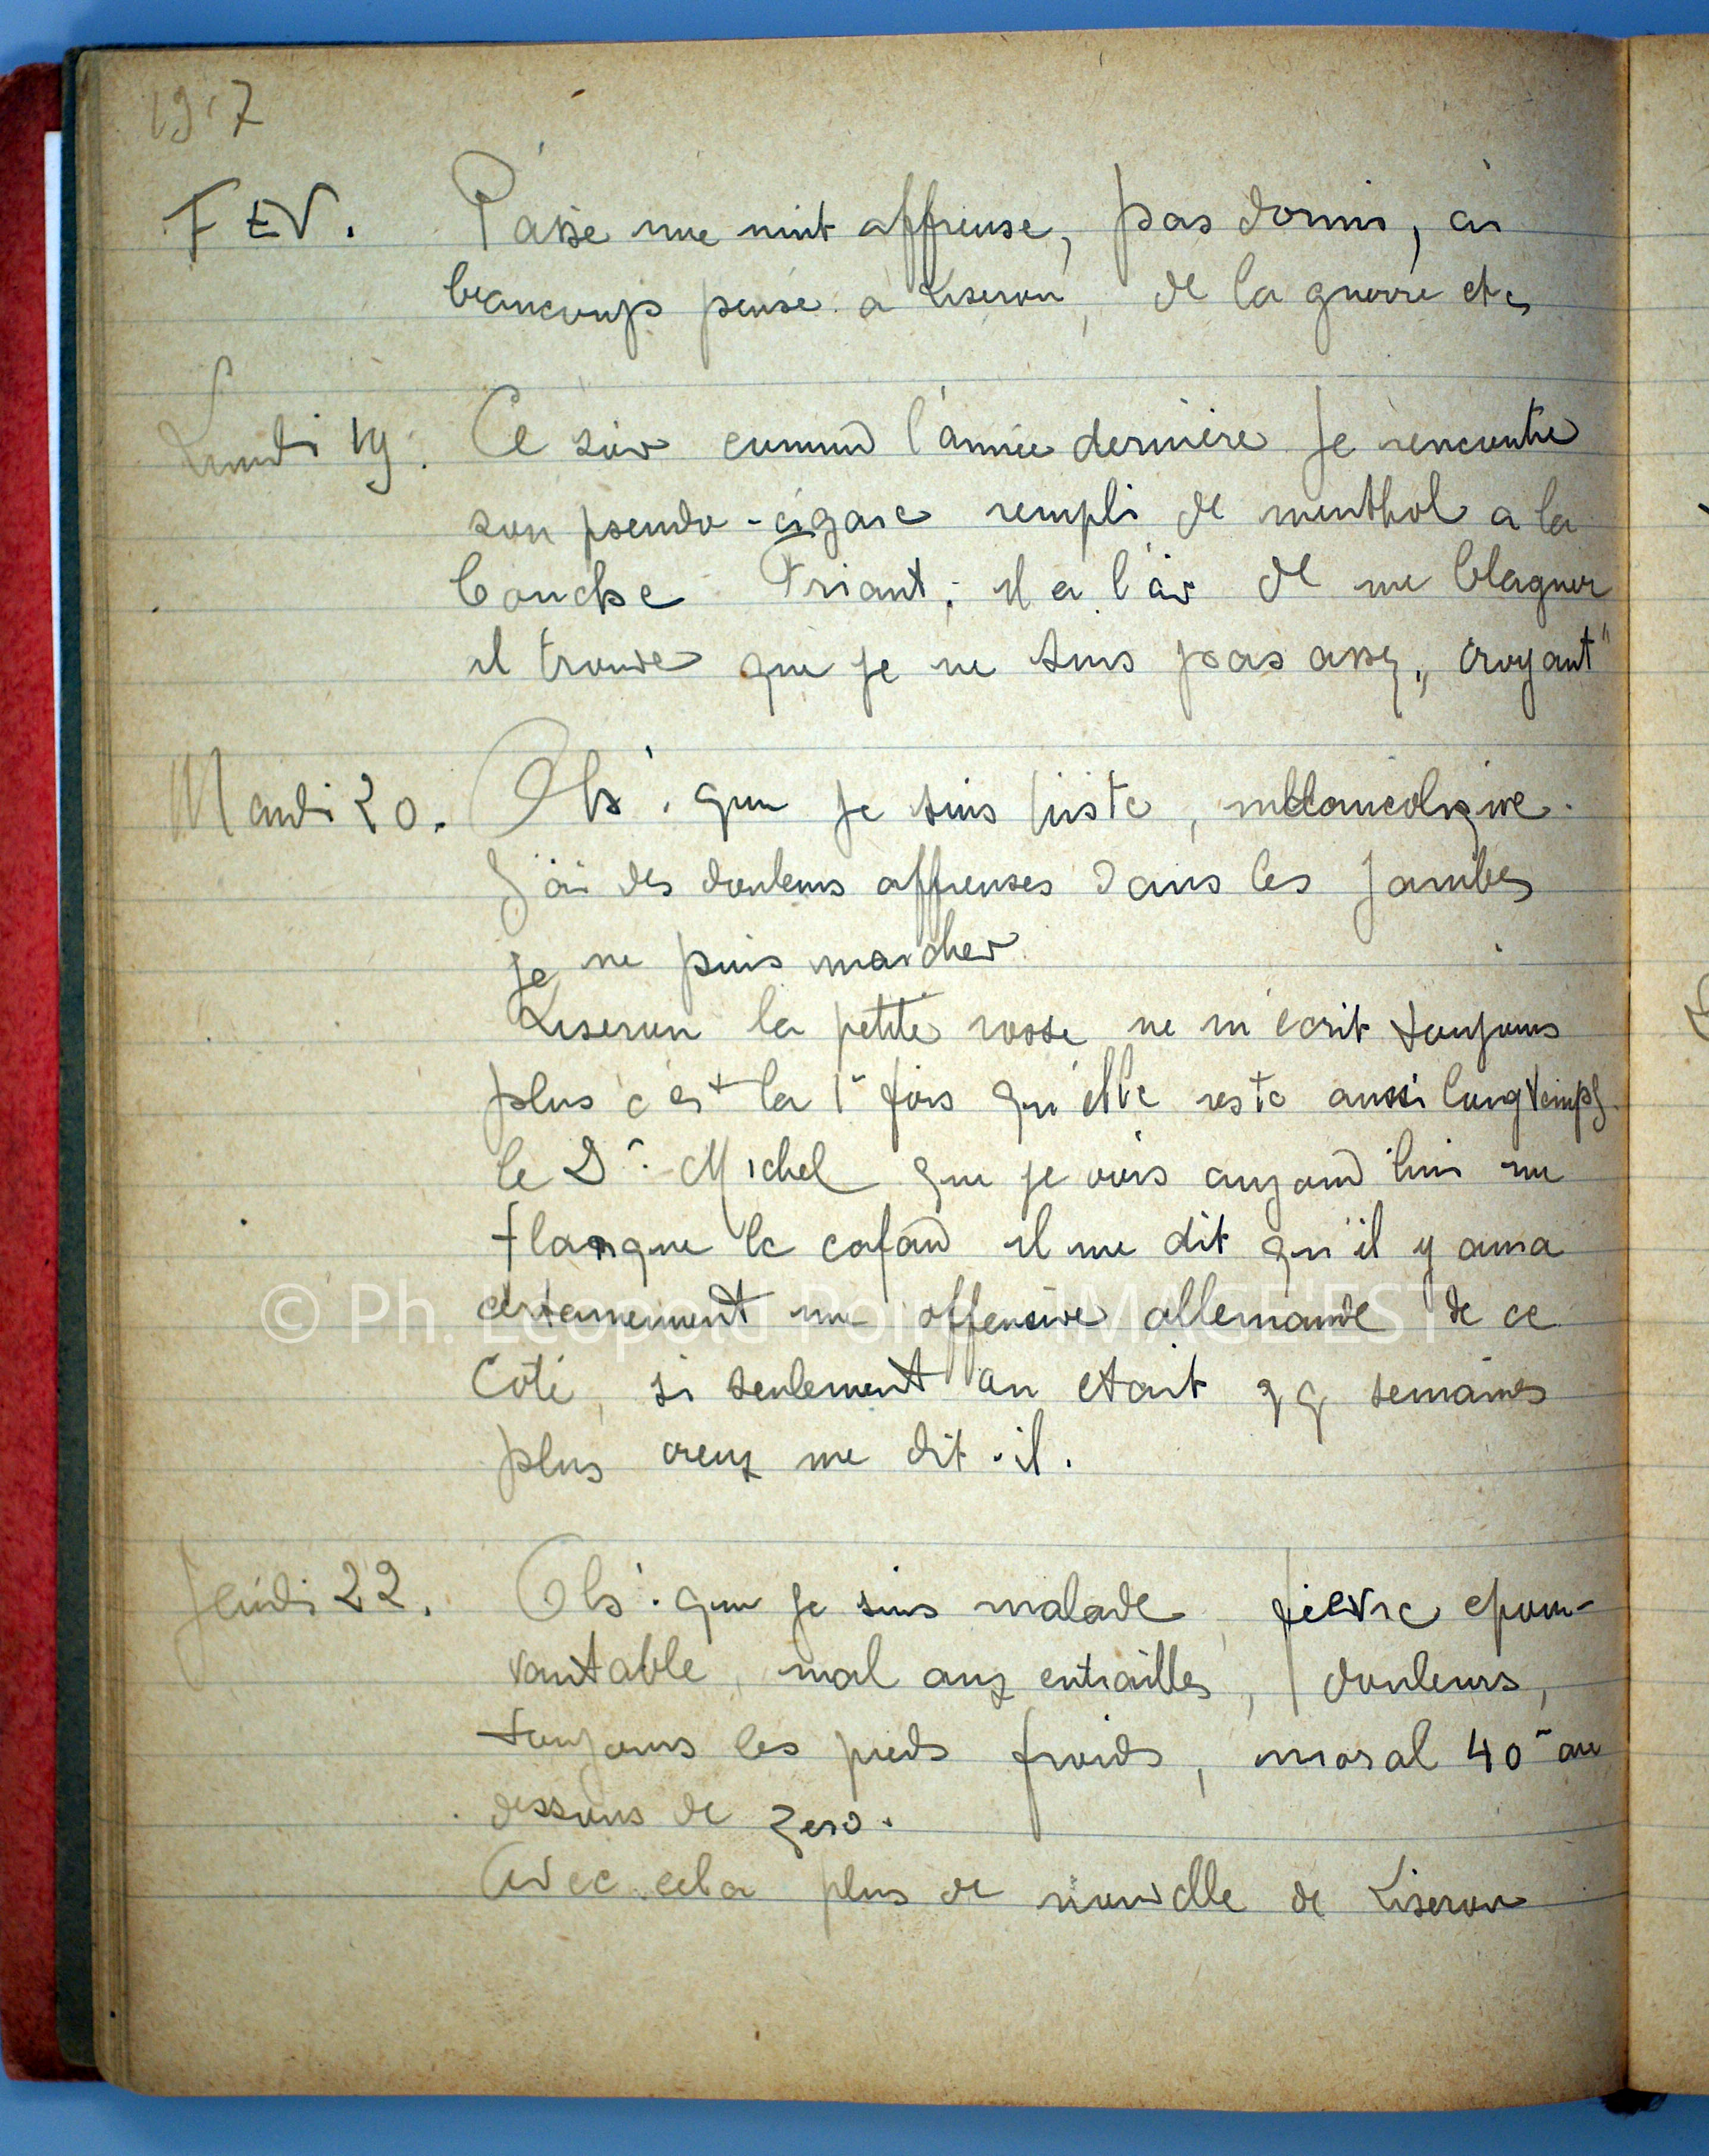 1917
FEV. Passe une nuit affreuse, pas dormi, ai
beaucoups pensé a Liseron, de la guerre etc
Lundi 19. Ce soir comme l'année dernière je rencontre
son pseudo-cigare rempli de menthol a la
bouche Friant; il a l'air de me blaguer
il trouve que je ne suis pas assez „croyant"
Mardi 20. Oh! que je suis triste, mélancolique.
J'ai des douleurs affreuses dans les jambes
je ne puis marcher
Liseron la petite rosse ne m'écrit toujours
plus c'est la 1e fois qu'elle reste aussi longtemps.
le Dr. Michel que je vois aujourd'hui me
flanque le cafard il me dit qu'il y aura
certainement une offensive allemande de ce
coté, si seulement on etait qq semaines
plus vieux me dit-il.
Jeudi 22. Oh! que je suis malade, fievre epou-
vantable, mal aux entrailles, douleurs,
toujours les pieds froids, moral 40° au
dessous de zero.
Avec cela plus de nouvelle de Liseron
© Ph. Léopold Poi IMAGE'EST